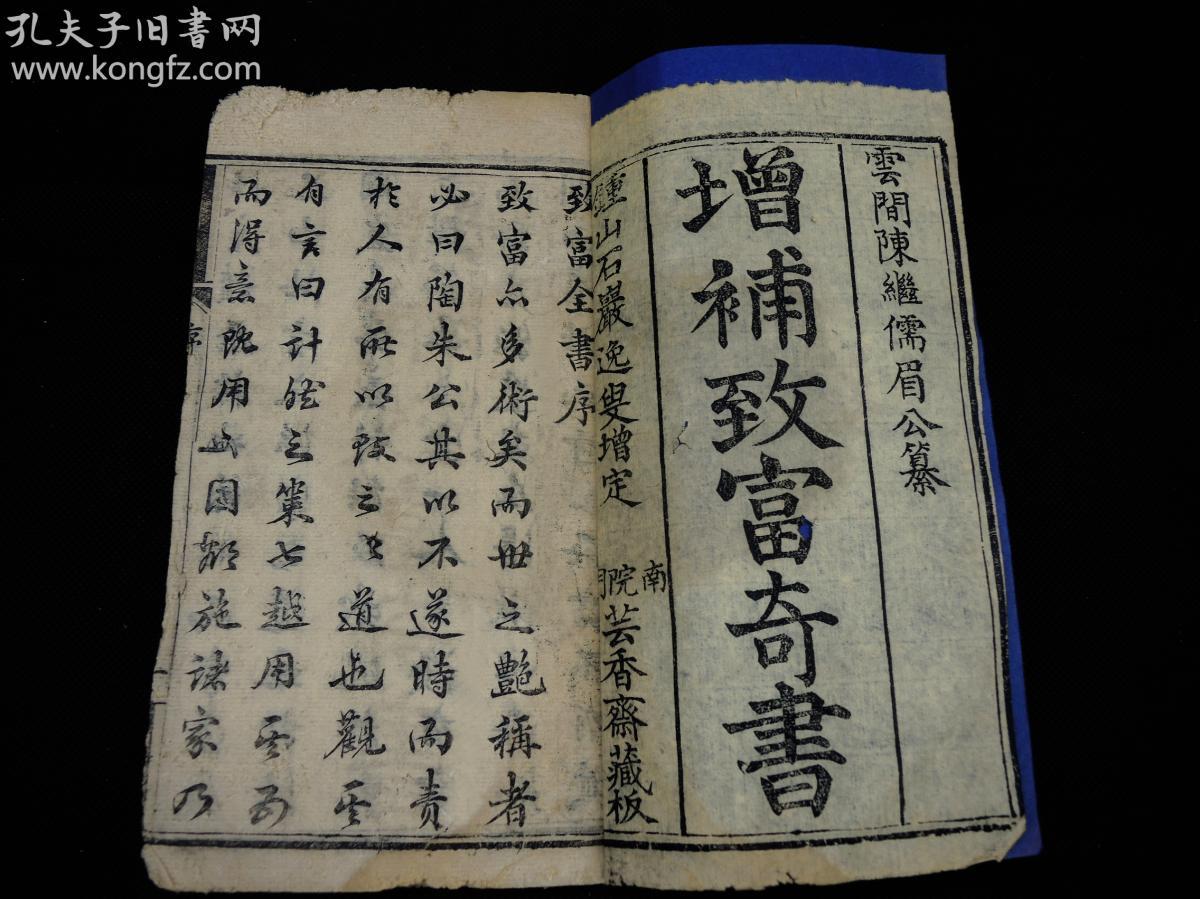 孔夫子旧书网
www.kongfz.com
雲間陳繼儒眉公纂
增補致富奇書
鍾山石巖逸叟增定
南院芸香齋藏板
致富全書序
致富亦多術矣而世之艷稱者
必曰陶朱公其以不遂時而責
於人有所以致之之道也觀其
有言曰計然之策七越用其五
而得意既用國欲施諸家乃
序